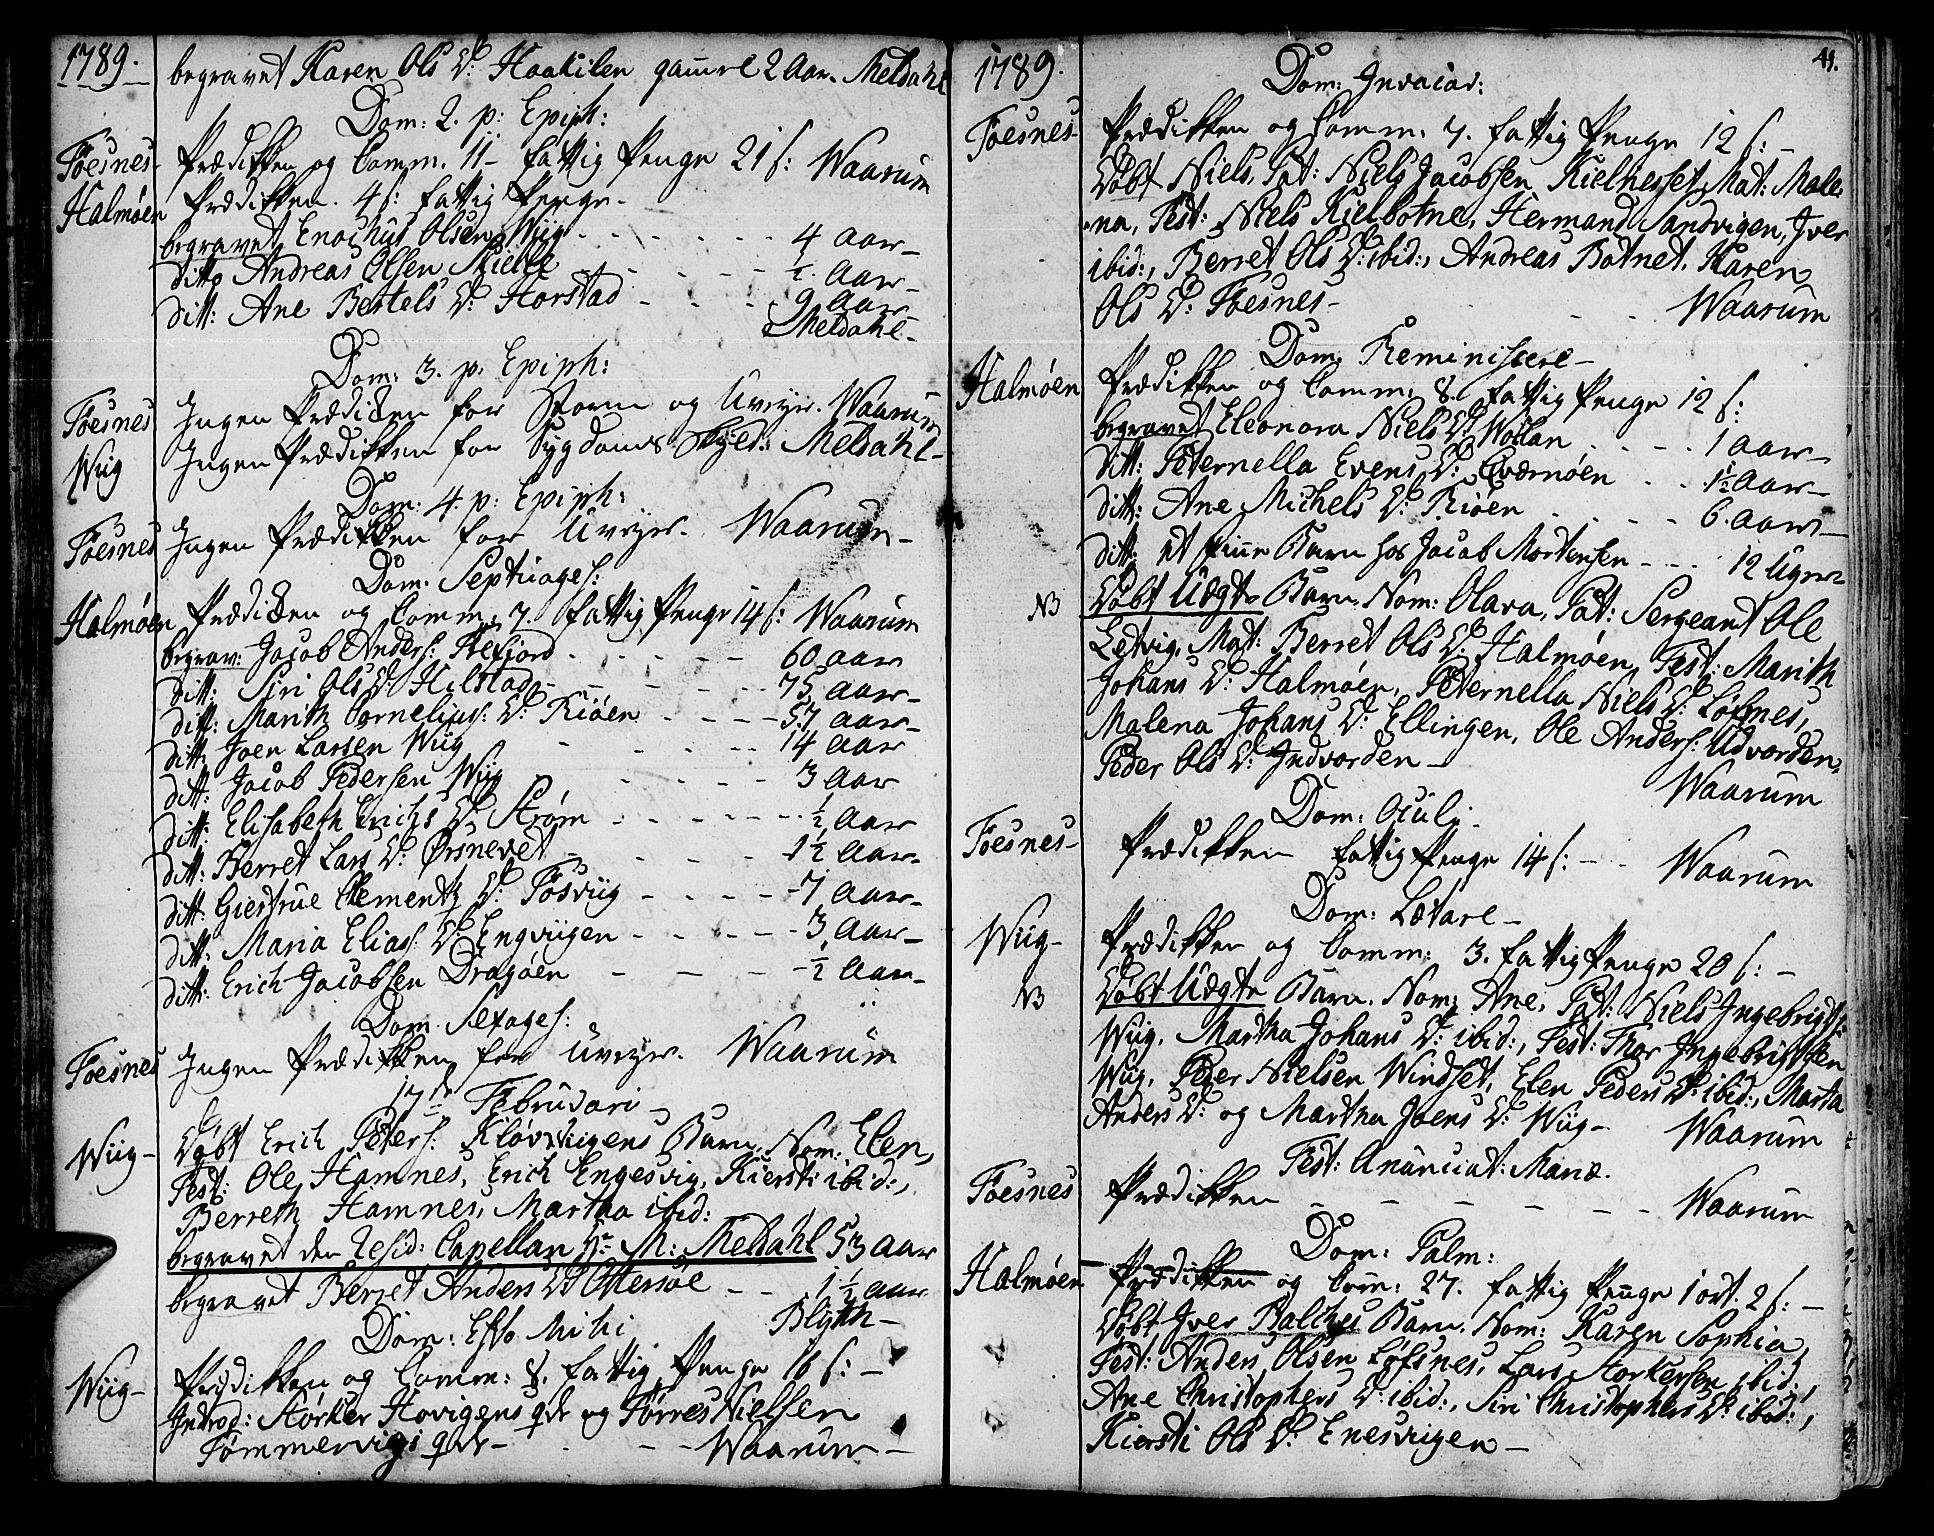 1789.
begravet Karen Ols D: Haakilen gamel 2 Aar. Meldahl
Dom: 2. p: Epiph:
Foesnes- Prædikken og Comm. 11- fattig Penge 21 s: Waarum
Halmøen Prædikken. 4 s: fattig Penge.
begravet Enochus Olsen Wiig - - - 4 Aar-
ditto Andreas Olsen - - - ½ Aar-
ditt: Ane Bertels D: Horstad - - - 9 Aar
Meldahl-
Dom: 3. p: Epiph:
Foesnes Ingen Prædiken for Storm og Uveyr. Waarum
Wiig Ingen Prædikken for Sygdoms Skyld: Meldahl-
Dom: 4. p: Epiph:
Foesnes Ingen Prædikken for Uveyr. Waarum-
Dom: Septuages:
Halmøen Prædiken og Comm: 7. fattig Penge 14 s: Waarum
begrav: Jacob Anders: - - - 60 Aar
ditt: Siri Ols D: Hilstad - - - 75 Aar-
ditt: Marith Cornelius: D: Riøen - - - 57 Aar-
ditt: Joen Larsen Wiig - - - 14 Aar
ditt: Jacob Pedersen Wiig - - - 3 Aar
ditt: Elisabeth Erichs D: Strøm - - - ½ Aar
ditt: Berret Lars D: Ørsnevet - - - 1½ Aar-
ditt: Giertrue Clements D: Fosviig - - - 7 Aar-
ditt: Maria Elias: D: Engviigen - - - 3 Aar-
ditt: Erich Jacobsen Dragøen - - - ½ Aar
Dom. Sexages:
Foesnes Ingen Prædikken for Uveyr. Waarum
17de Februari-
Wiig- Døbt Erich Peters: Kløvviigens Barn, Nom: Elen,
Test: Ole Hamnes, Erich Engesvig, Kiersti ibid:,
Berreth Hamnes, Martha ibid:
begravet den Resid: Capellan Hr M: Meldahl 53 Aar
begravet Berret Anders D: Ottersøe - - 1½ Aar
Blyth-
Dom: Esto Mihi
Wiig- Prædikken og Comm: 8. fattig Penge 16 s: -
Introd: Storker Hovigens qde og Torres Nielsen
Tømmervigs qde - - - Waarum-
1789.
41.
Dom: Invocav:
Foesnes- Prædikken og Comm: 7. fattig Penge 12 s: -
Døbt Niels, Pat: Niels Jacobsen Kielnesset Mat: Male
na, Test: Niels Kielbotne, Hermand Sandvigen, Iver
ibid:, Berret Ols D: ibid:, Andreas Botnet, Karen
Ols D: Foesnes- - - Waarum
Dom. Reminiscere-
Halmøen Prædikken og Comm: 8. fattig Penge 12 s:
begravet Eleonora Niels D: Wollan - - - 1 Aar-
ditt: Peternella Evens D: Qværnøen - - 1½ Aar-
ditt: Ane Michels D: Riøen - - - 6. Aar-
ditt: et finne Barn hos Jacob Mortensen - - - 12 Uger
NB Døbt Uægte Barn, Nom: Olava, Pat: Sergeant Ole
Letvig, Mat: Berret Ols D: Halmøen, Test: Marith
Johans D: Halmøen, Peternella Niels D: Løfsnes,
Malena Johans D: Ellingen, Ole Anders: Udvorden,
Peder Ols D: Indvorden-
Waarum
Dom: Oculi.
Foesnes- Prædikken fattig Penge 14 s: - - Waarum
Dom: Lætare-
Wiig- Prædikken og Comm: 3. fattig Penge 20 s: -
NB Døbt Uægte Barn. Nom: Ane, Pat: Niels Ingebrigts:
Wiig, Martha Johans D: ibid:, Test: Thor Ingebrigtsen
Wiig, Peder Nielsen Windset, Elen Peders D: ibid:, Marta
Anders D: og Martha Joens D: Wiig- Waarum
Fest: Anunciat: Mariæ.
Foesnes Prædikken - - - - - Waarum
Dom: Palm:
Halmøen Prædikken og Com: 27. fattig Penge 1 ort. 2 s: -
Døbt Iver Balches Barn. Nom: Karen Sophia,
Test: Anders Olsen Løfsnes, Lars Storkersen ibid:,
Ane Christophers D: ibid:, Siri Christophers D: ibid:,
Kiersti Ols D: Enesviigen-